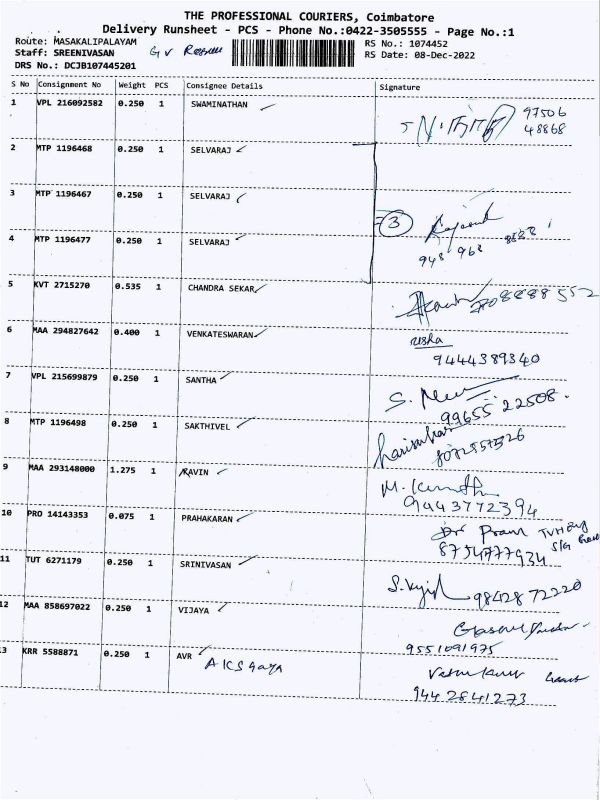 THE PROFESSIONAL COURIERS, Coimbatore
Delivery Runsheet - PCS - Phone No.:0422-3505555 - Page No.:1
Route: MASAKALIPALAYAM
Staff: SREENIVASAN G V
DRS No.: DCJB107445201
RS No.: 1074452
RS Date: 08-Dec-2022
S No Consignment No Weight PCS Consignee Details Signature
1 VPL 216092582 0.250 1 SWAMINATHAN 97506
48868
2 MTP 1196468 0.250 1 SELVARAJ
3 MTP 1196467 0.250 1 SELVARAJ
3
4 MTP 1196477 0.250 1 SELVARAJ
948 968
5 KVT 2715270 0.535 1 CHANDRA SEKAR
6 MAA 294827642 0.400 1 VENKATESWARAN
9444389340
7 VPL 215699879 0.250 1 SANTHA
99655 22508
8 MTP 1196498 0.250 1 SAKTHIVEL
9 MAA 293148000 1.275 1 RAVIN
9443772394
10 PRO 14143353 0.075 1 PRAHAKARAN
8754777934
11 TUT 6271179 0.250 1 SRINIVASAN
98428 72220
12 MAA 858697022 0.250 1 VIJAYA
9551091975
13 KRR 5588871 0.250 1 AVR
9442841273